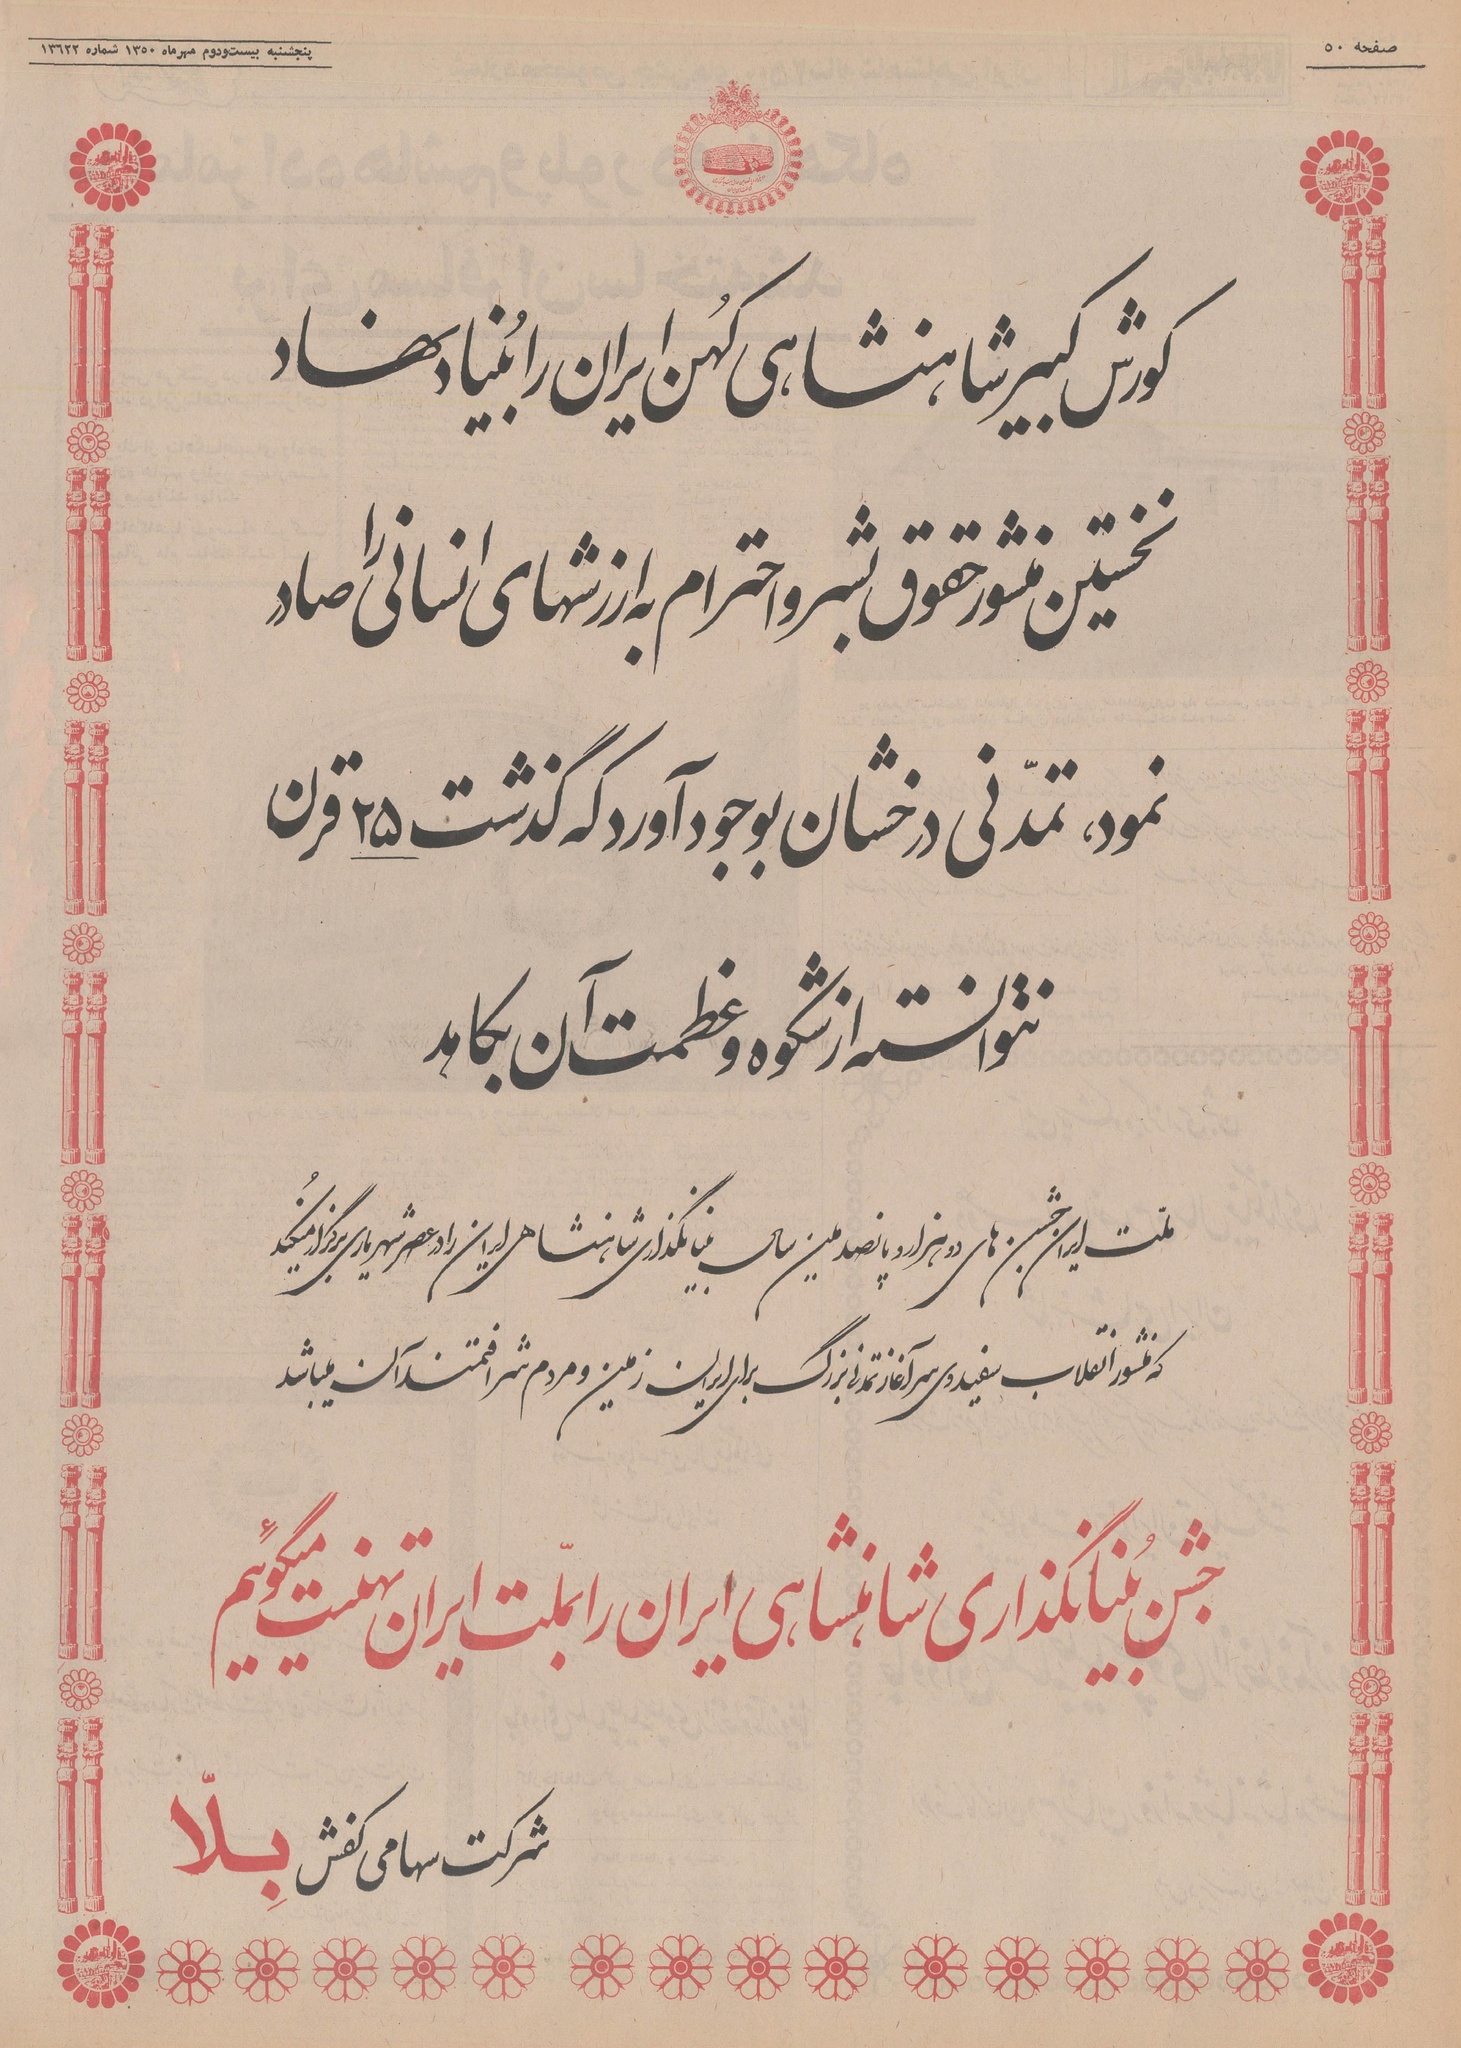 صفحه ۵۰
پنجشنبه بیست‌ودوم مهرماه ۱۳۵۰ شماره ۱۳۶۲۲
کورش کبیر شاهنشاهی کهُن ایران را بُنیاد نهاد
نخستین منشور حقوق بشر و احترام به ارزشهای انسانی را صادر
نمود، تمدّنی درخشان بوجود آورد که گذشت ۲۵ قرن
نتوانسته از شکوه و عظمت آن بکاهد
ملّت ایران جشن های دو هزار و پانصدمین سال بنیانگذاری شاهنشاهی ایران را در عصر شهریاری برگزار میکُند
که منشور انقلاب سفید وی سرآغاز تمدنی بزرگ برای ایران زمین و مردم شرافتمند آن میباشد
جشن بُنیانگذاری شاهنشاهی ایران را بملّت ایران تهنیت میگوئیم
شرکت سهامی کفش بِلّا